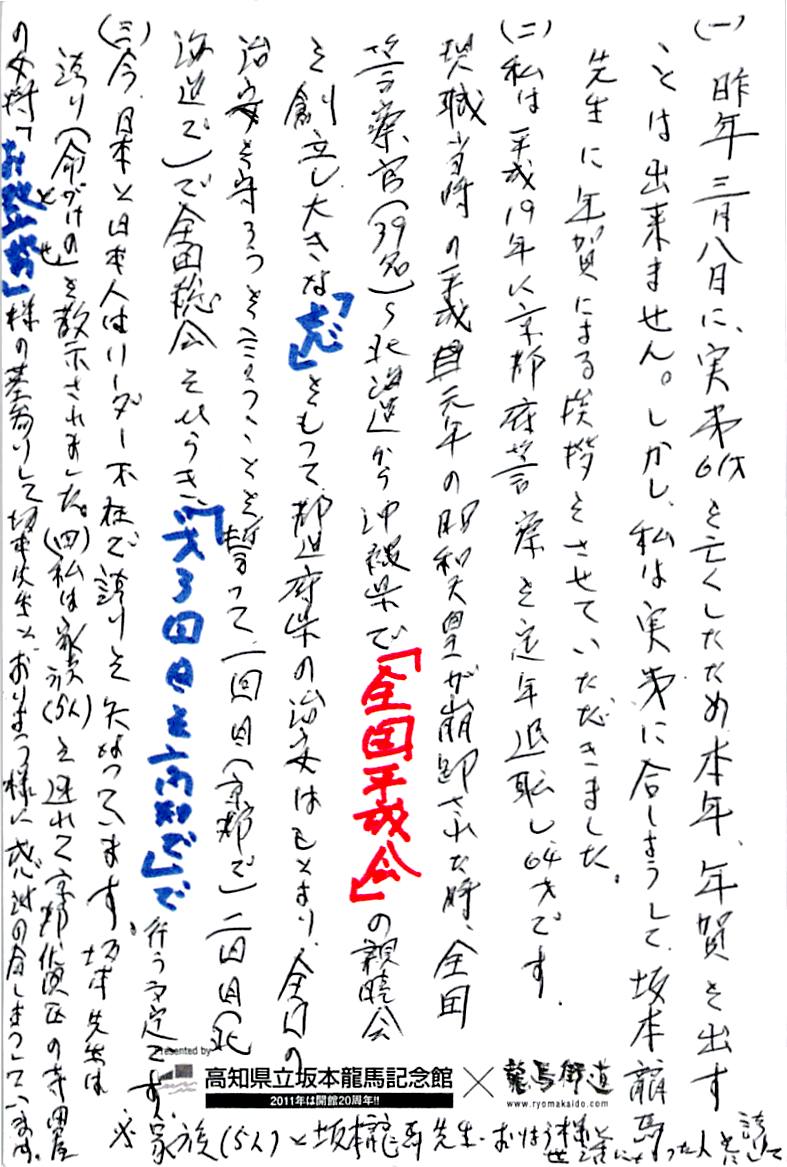 (一) 昨年三月八日に、実弟61才を亡くしたため本年、年賀を出す
ことは出来ません。しかし、私は実弟に合しょうして、坂本龍馬
先生に年賀による挨拶をさせていただきました。
(二) 私は平成19年に京都府警察を定年退職し64才です。
現職当時の平成元年の昭和天皇が崩御された時、全国
警察官(39名)北海道から沖縄県で「全国平成会」の親睦会
を創立し大きな「志」をもって、都道府県の治安はもとより、全国の
治安を守ろうと言うことを誓って、一回目(京都で)二回目(北
海道で)で全国総会をひらき、「第3回目を高知で」で
行う予定です。
(三) 今、日本と日本人はリーダー不在で誇りを失なっています。坂本先生は
誇り(命がけの)を教示されました。(四) 私は家族(5人)を連れて京都伏見区の寺田屋
の女将「お登勢」様の墓参りして坂本先生とおりょう様に感謝の合しょうしています。
家族(5人)と坂本龍馬先生・おりょう様と
presented by
高知県立坂本龍馬記念館
2011年は開館20周年!!
×
龍馬街道
www.ryomakaido.com